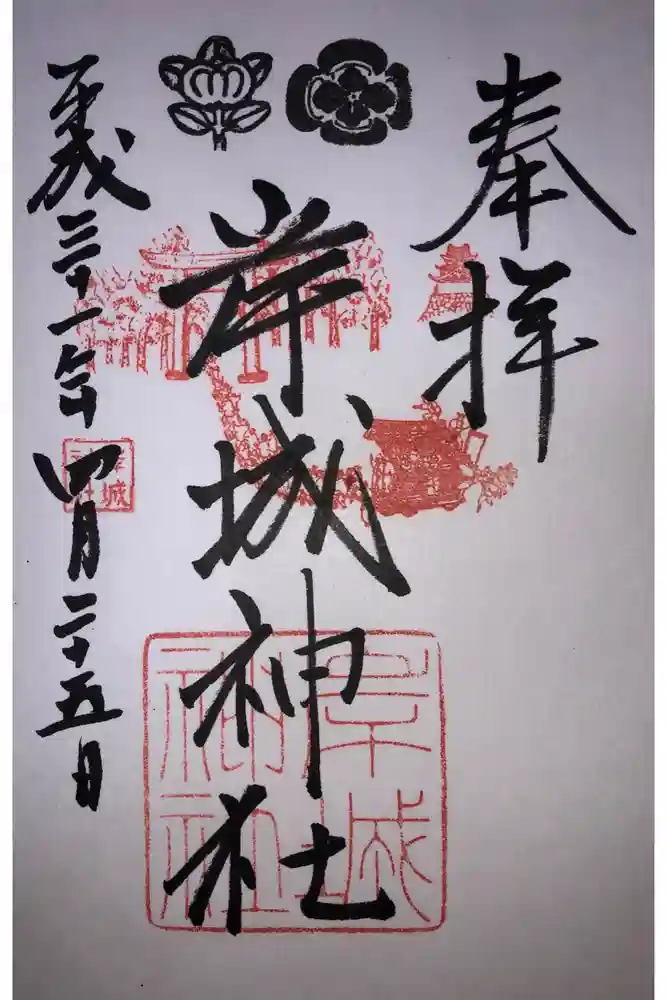 奉拝
岸城神社
平成三十一年四月二十五日
岸城
神社
岸城
神社